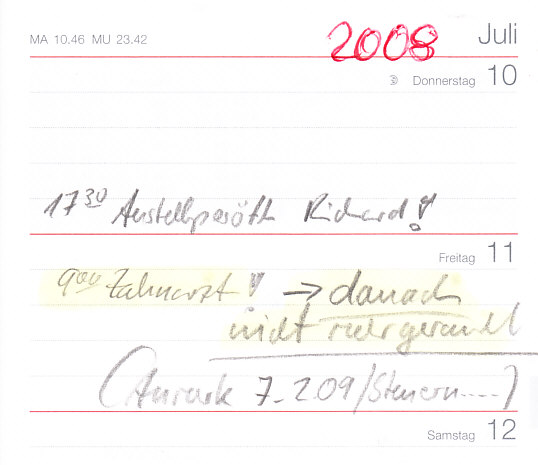 MA 10.46 MU 23.42
2008 Juli
Donnerstag 10
17 30 Richard!
Freitag 11
9 00 Zahnarzt! → danach
nicht mehr geraucht
7.2.09/Steuern....)
Samstag 12